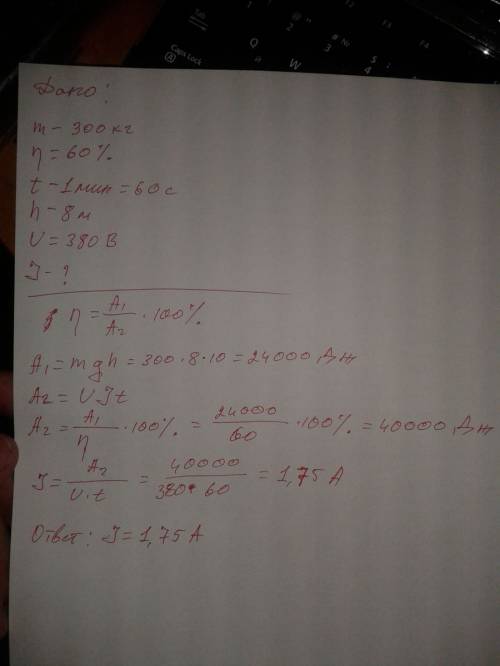 Tab
Caps Lock
Q
W
Дано:
m - 300 кг
η = 60%
t - 1 мин = 60 с
h - 8 м
U = 380 В
I - ?
η = A₁/A₂ · 100%
A₁ = mgh = 300 · 8 · 10 = 24000 Дж
A₂ = UIt
A₂ = A₁/η · 100% = 24000/60 · 100% = 40000 Дж
I = A₂/U·t = 40000/380·60 = 1,75 А
Ответ: I = 1,75 А